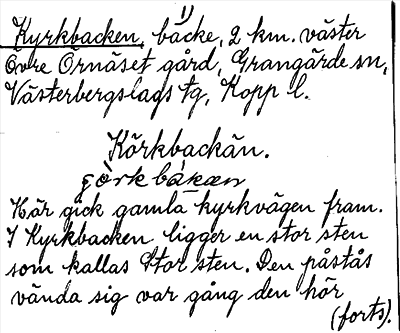 1)
Kyrkbacken, backe, 2 km. väster
Övre Örnäset gård, Grangärde sn,
Västerbergslags tg, Kopp l.
Körkbackän.
çòrkbákæn
Här gick gamla kyrkvägen fram.
I Kyrkbacken ligger en stor sten
som kallas Stor sten. Den påstås
vända sig var gång den hör
(forts).